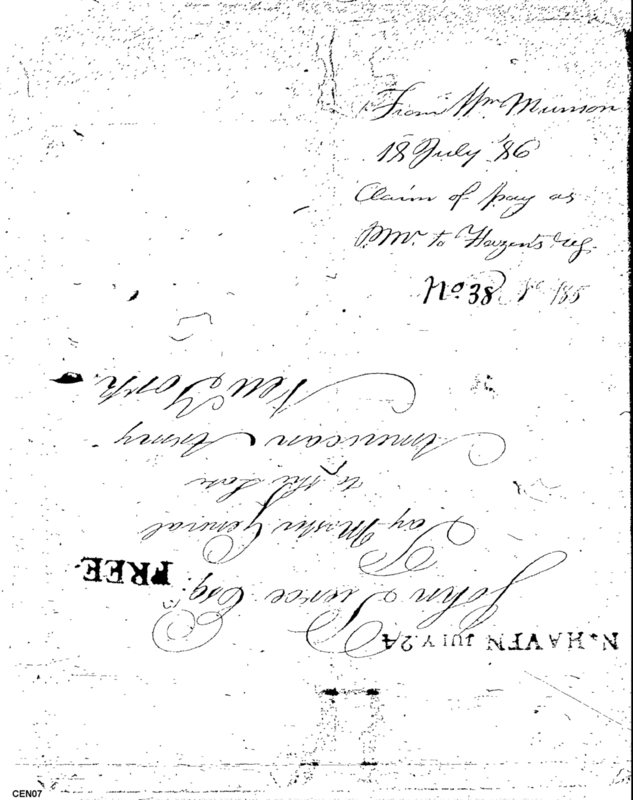 From Wm Munson
18 July '86
Claim of pay as
P.M. to Hazen's reg.
No 38
N*HAVEN JULY 24
John Pierce Esqr.
FREE
Pay Master General
to the Late
American Army
New York.
CEN07